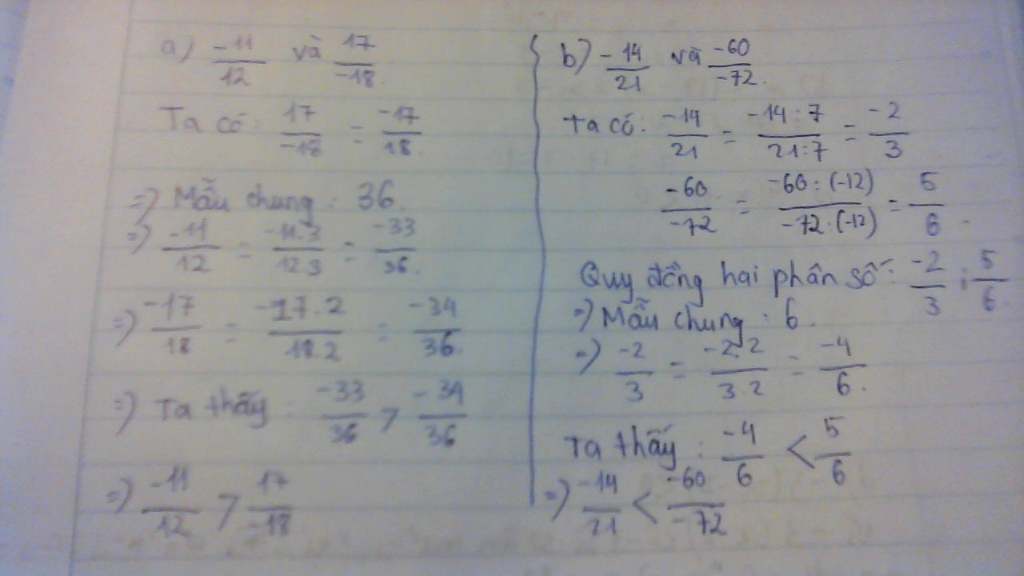 a) -11/12 và 17/-18
Ta có: 17/-18 = -17/18.
=) Mẫu chung : 36.
=) -11/12 = -11.3/12.3 = -33/36.
=) -17/18 = -17.2/18.2 = -34/36.
=) Ta thấy : -33/36 > -34/36
=) -11/12 > 17/-18
b) -14/21 và -60/-72.
Ta có: -14/21 = -14:7/21:7 = -2/3
-60/-72 = -60:(-12)/-72:(-12) = 5/6.
Quy đồng hai phân số: -2/3 ; 5/6.
=) Mẫu chung : 6.
=) -2/3 = -2.2/3.2 = -4/6.
Ta thấy : -4/6 < 5/6
=) -14/21 < -60/-72